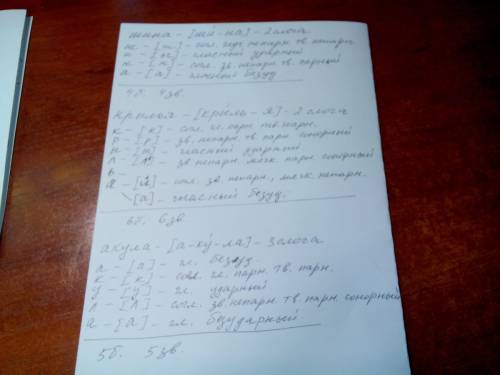 шина - [ши́-на] - 2 слога
ш - [ш] - согл. глух. непарн. тв. непарн.
и - [ы] - гласный ударный
н - [н] - согл. зв. непарн. тв. парный
а - [а] - гласный безуд.
4б. 4зв.
крылья - [кры́ль-я] - 2 слога
к - [к] - согл. гл. парн. тв. парн.
р - [р] - зв. непарн. тв. парн. сонорный
ы - [ы] - гласный ударный
л - [л'] - зв. непарн. мягк. парн. сонорный
ь -
я - [й] - согл. зв. непарн., мягк. непарн.
\ [а] - гласный безуд.
6б. 6зв
акула - [а-ку́-ла] - 3 слога
а - [а] - гл. безуд.
к - [к] - согл. гл. парн. тв. парн.
у - [у] - гл. ударный
л - [л] - согл. зв. непарн. тв. парн. сонорный
а - [а] - гл. безударный.
5б. 5зв.